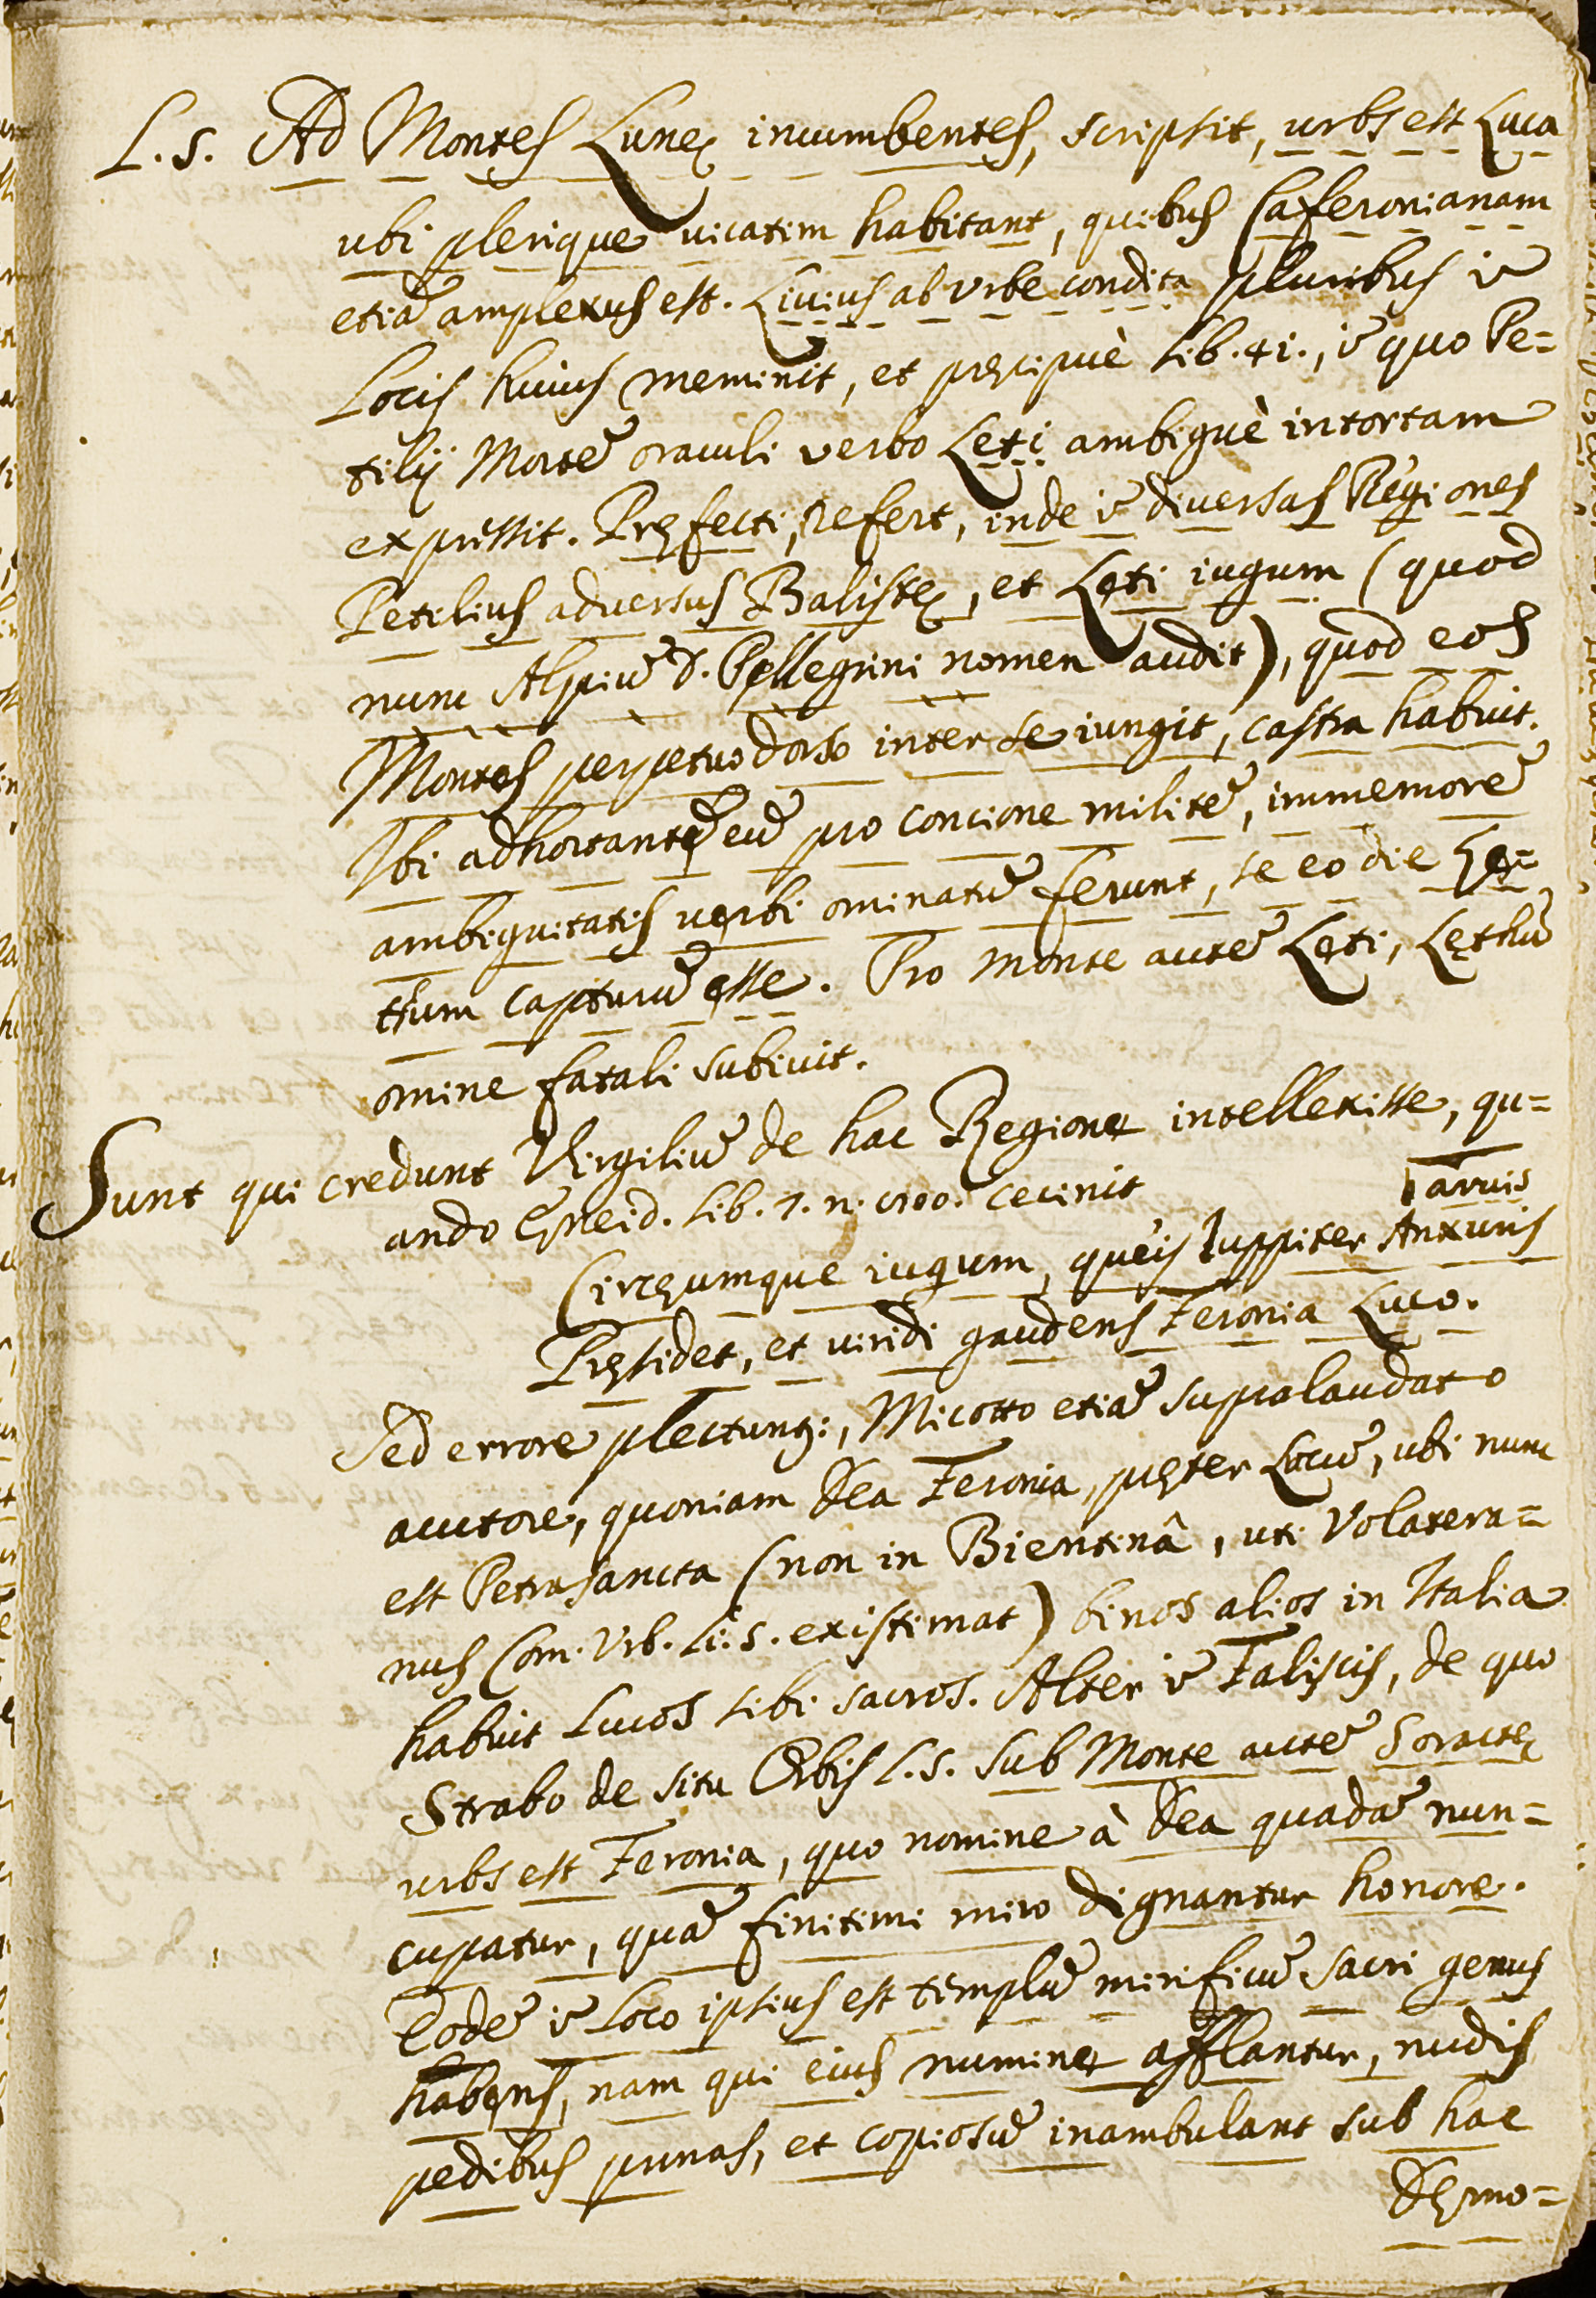 L.5. Ad Montes Lunę incumbentes, scripsit, urbs est Luca
ubi plerique vicatim habitant, quibus Caferonianam
etiã amplexus est. Livius ab Urbe condita pluribus ĩ
Locis huius meminit, et pręcipuè Lib. 41., ĩ quo Pe=
tilij Mortẽ oraculi verbo Leti ambiguè intortam
expressit. Pręfecti, refert, inde ĩ diversas Regiones
Petilius adversus Balistę, et Lęti iugum (quod
nunc Alpiũ D. Pellegrini nomen audit), quod eos
Montes perpetuo dorso inter se iungit, castra habuit.
Ibi adhortantẽ eũ pro concione militẽ, immemorẽ
ambiguitatis verbi ominatũ ferunt, se eo die Lę=
thum capturũ esse. Pro Monte autẽ Lęti, Lęthũ
omine fatali subivit.
Sunt qui credunt Virgiliũ de hac Regione intellexisse, qu=
ando Ęneid. Lib. 7. n. 800. cecinit
arvis
Circęumque iugum, queis Iuppiter Anxuris
Pręsidet, et viridi gaudens Feronia Luco.
Sed errore plectunt;, Micotto etiã supralaudato
auctore, quoniam Dea Feronia, pręter Locũ, ubi nunc
est Petrasancta (non in Bientinâ, uti Volatera=
nus Com. Urb. Li. 5. existimat) binos alios in Italia
habuit Lucos sibi sacros. Alter ĩ Faliscis, de quo
Strabo de situ Orbis L.5. Sub Monte autẽ Soractę
urbs est Feronia, quo nomine à Dea quadã nun=
cupatur, quã finitimi miro dignantur honore.
Eodẽ ĩ Loco ipsius est templũ mirificũ sacri genus
habens, nam qui eius numine afflantur, nudis
pedibus prunas, et copiosũ inambulant sub hac
Dęmo=